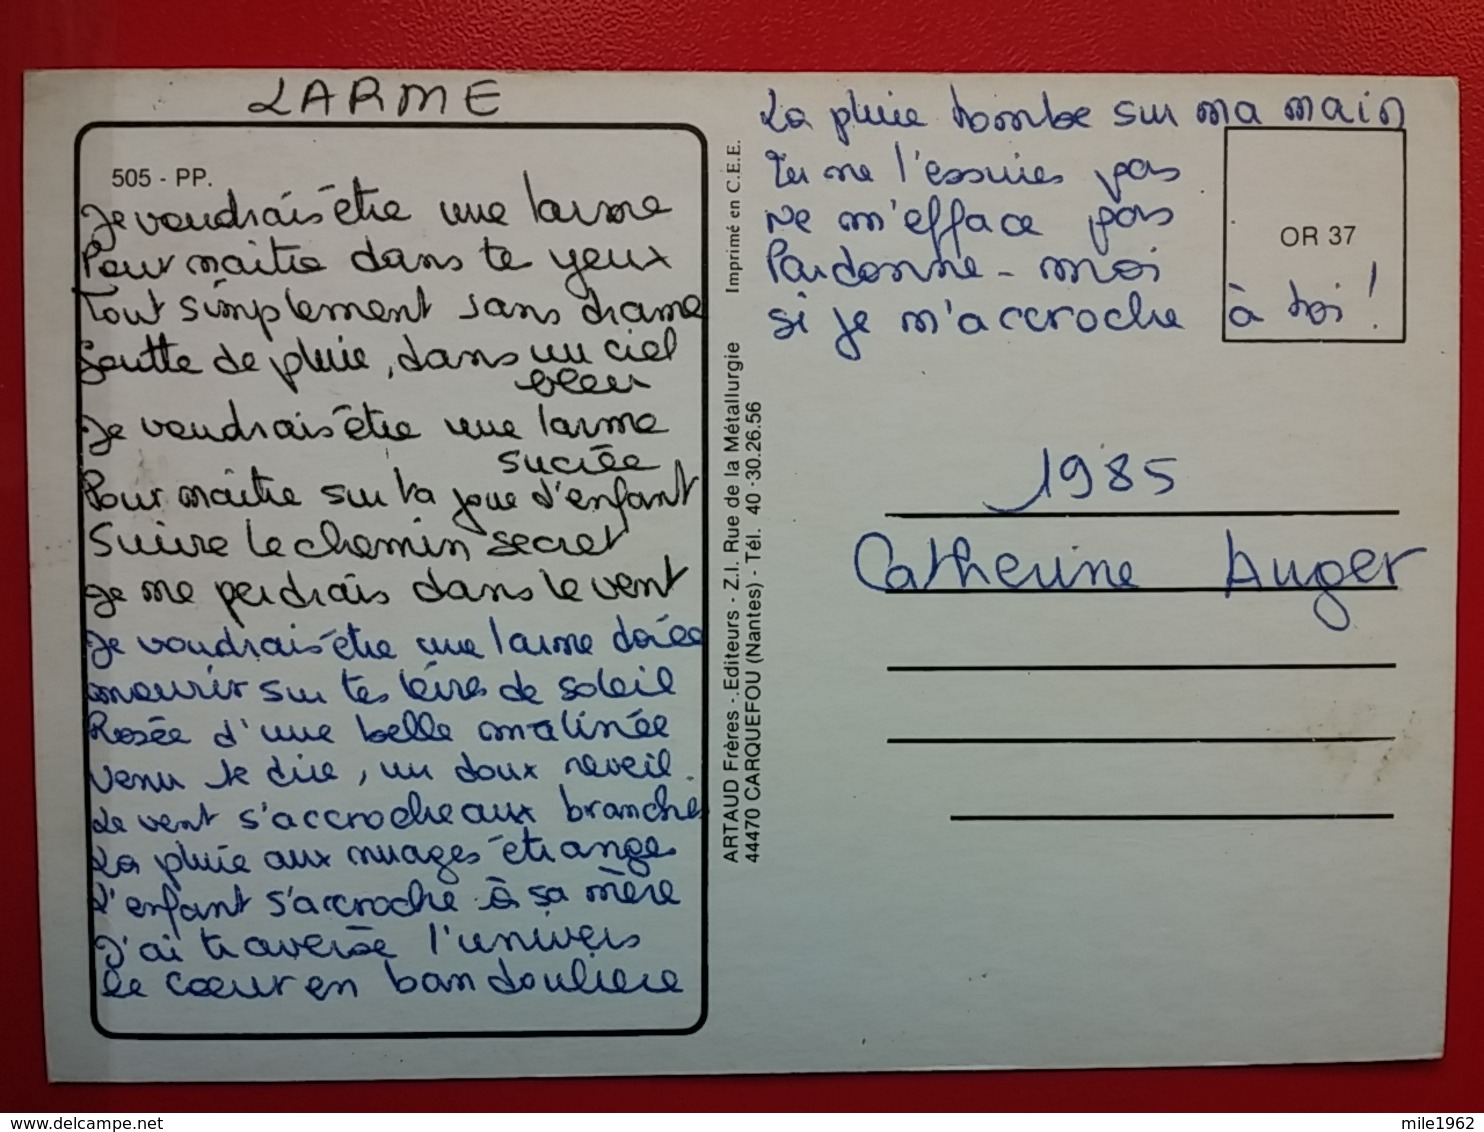 LARME
505 - PP.
Je voudrais être une larme
Pour naitre dans te yeux
Tout simplement sans drame
Goutte de pluie, dans un ciel
bleu
Je voudrais être une larme
sucrée
Pour naître sur ta joue d'enfant
Suivre le chemin secret
Je me perdrais dans le vent
Je voudrais être une larme dorée
mourir sur tes lèvres de soleil
Rosée d'une belle matinée
venu te dire, un doux reveil.
Le vent s'accroche aux branches
La pluie aux nuages étranges
L'enfant s'accroche à sa mère
J'ai traversée l'univers
le cœur en bandouliere
La pluie tombe sur ma main
Tu ne l'essuies pas
Ne m'efface pas
Pardonne-moi
si je m'accroche à toi !
OR 37
Imprimé en C.E.E.
ARTAUD Frères - Editeurs - Z.I. Rue de la Métallurgie
44470 CARQUEFOU (Nantes) - Tél. 40-30.26.56
1985
Catherine Auger
delcampe.net
mile1962